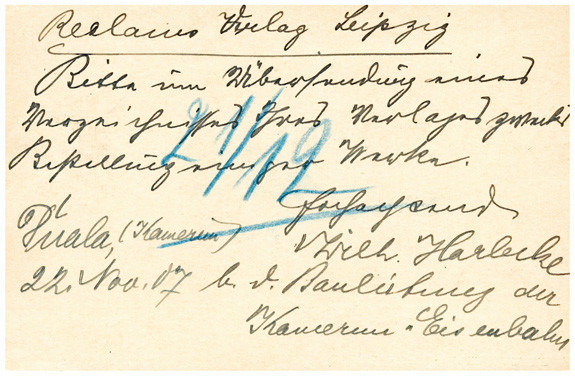 Reclams Verlag Leipzig
Bitte um Übersendung eines
Verzeichnisses Ihres Verlages zwecks
Bestellung einiger Werke.
21/12
Hochachtend
Duala, (Kamerun) Wilh. Harlecke
22. Nov. 07 b. d. Bauleitung der
Kamerun-Eisenbahn